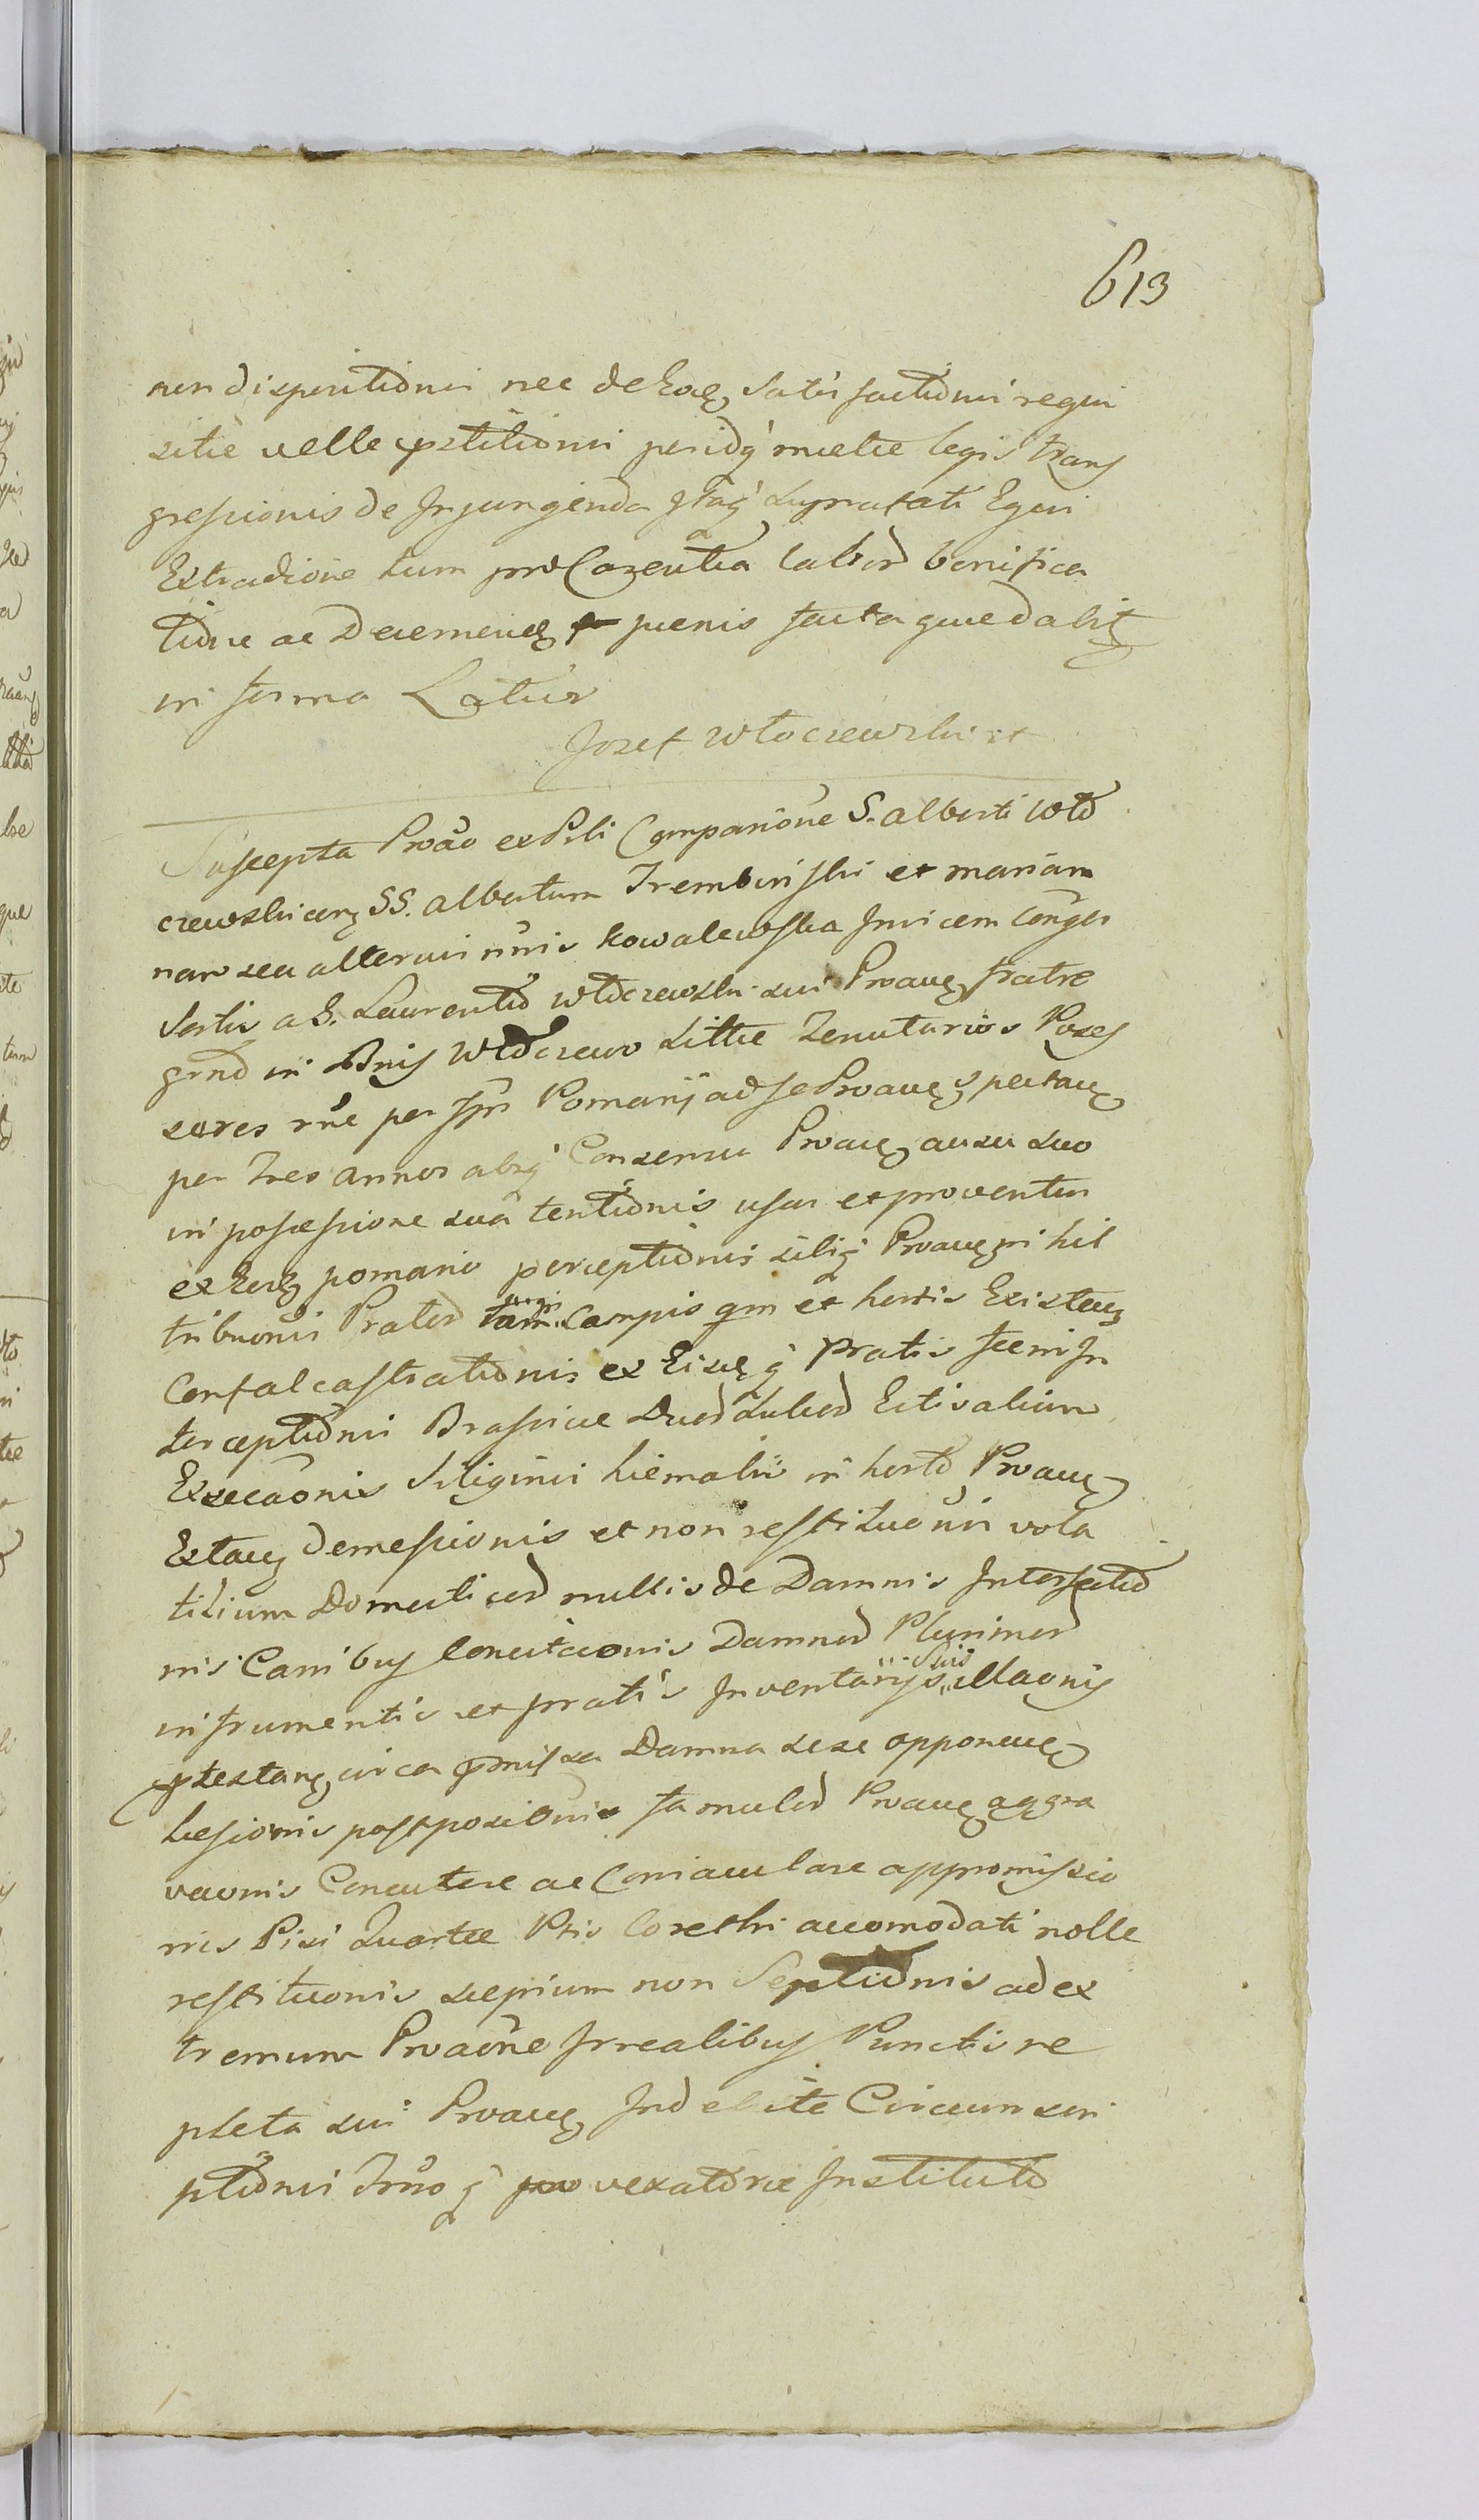 613
non dispentidnis nec de Eoq satisfactidnis requi
sitie velle pstitidnis peridq mulctae legis trans
gressionis de Injungenda qtaq supratati Equi
Extradione tum pro Carentia labord bonifica
tidne ac Decernend poenis facta quae dabit
in forma Latius
Jozef Włoczewski
Suscepta Proāo ex Pili Comparione S. Alberti Wło
czewski cerz SS. Albertum Trembinski et marian
nam seu alterius nnis Kowalewska Invicem Conges
sortis a S. Laurentio Włoczewski sui Proaue fratre
grnd in Bnis Włoczewo Sitte Tenutarios Poses
sores rne per Ipm Pomarij ad se Proaue spectan
per Tres annos absq Consensu Proaue ausu suo
in possessione sua tentidnis usus et proventus
ex Eod pomario perceptidnis sibiq Proaue nihil
tribuonis Prator tam in Campis qm et hortis Existen
Confalcastratidnis ex Eisdq Pratis foeni In
terceptidnis Brassicae Duor Sulcor Estivalium
Exsecāonis Siliginis hiemalis in horto Proaue
Extan demessionis et non restituonis vola
tilium Domesticor nullis de Damnis Interfectid
nis Canibus Concitaonis Damnor Plurimor
in frumentis et pratis Inventarijs Suis illaonis
ptestan circa pmissa Damna sese opponen
laesionis postpositionis famulor Proaue aggra
vaonis Concutere ac Coniaculare appromissio
nis Pisi Quartae Ptis Coretki accomodati nolle
restituonis sepium non Septidnis ad ex
tremum Proaōne Irrealibus Punctis re
pleta sui Proaue Indebite Circumscri
ptidnis Irroq vexatorie Instituto